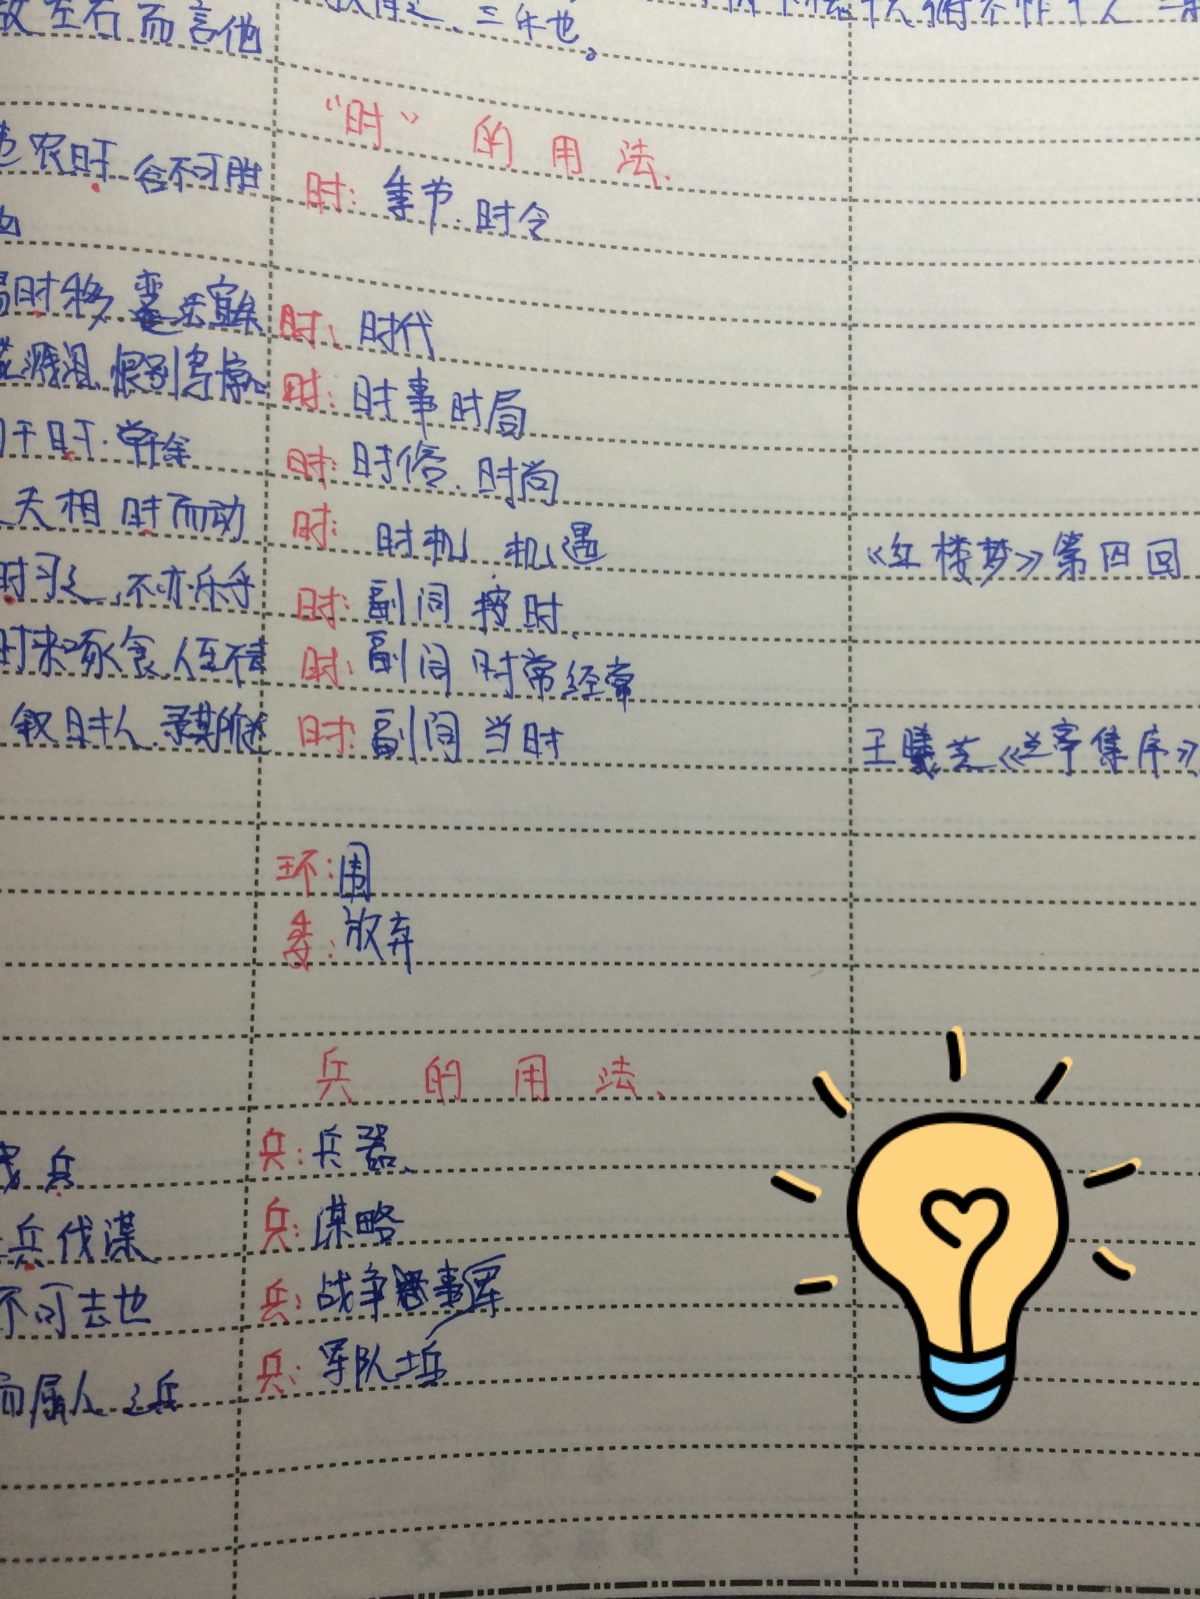 故左右而言他
三年也。
"时"的用法.
农时 谷不可胜
时: 季节. 时令
时移
时、时代
溅泪. 恨别鸟惊心
时: 时事时局
于时.
时: 时俗. 时尚
天相 时而动
时: 时机 机遇
《红楼梦》第四回
时习之, 不亦乐乎
时: 副词 按时.
时来啄食, 人至不去
时: 副词 时常经常
叙时人. 录其所述
时: 副词 当时
王曦芝《兰亭集序》
环: 围
委: 放弃
兵的用法、
兵
兵: 兵器、
兵伐谋
兵: 谋略
不可去也
兵: 战争 事军
而属人之兵
兵: 军队士兵